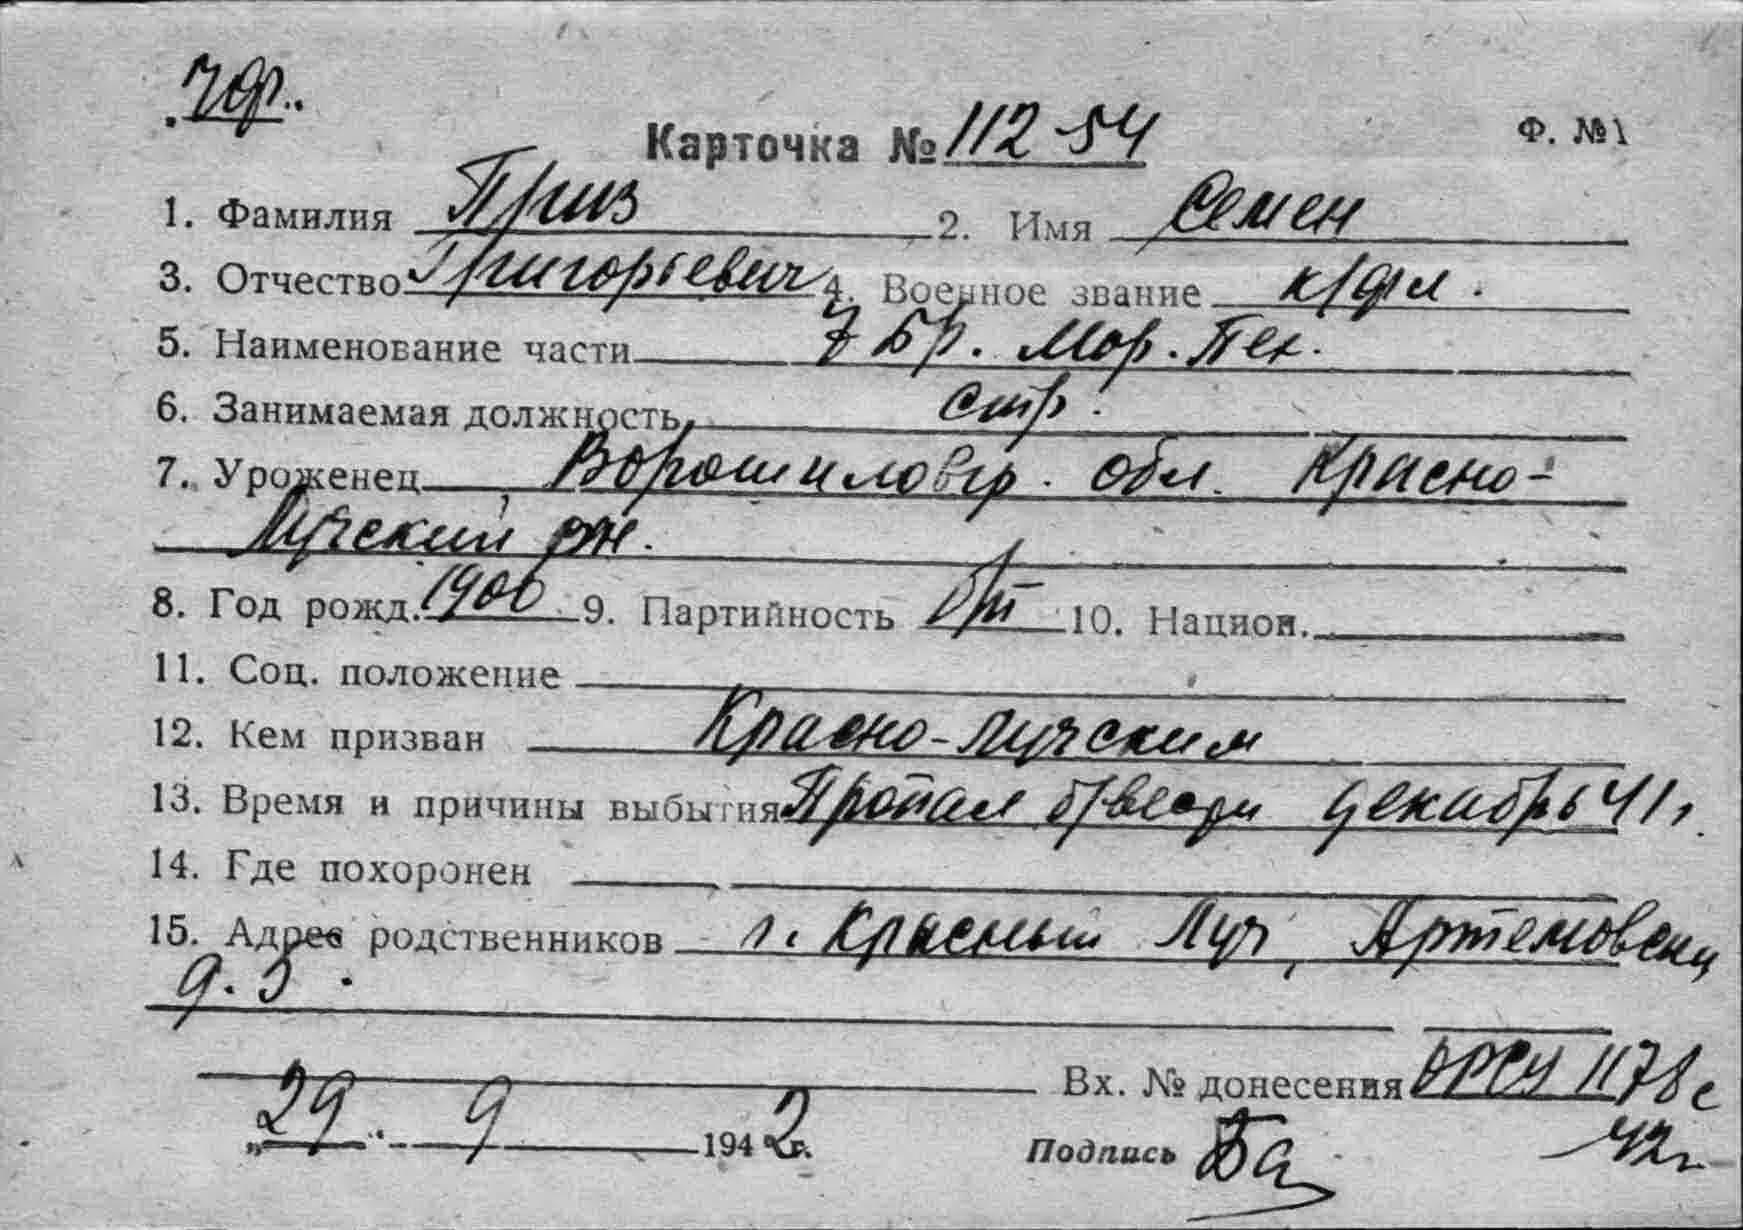 Карточка № 112-54 Ф. №1
1. Фамилия Приз 2. Имя Семен
3. Отчество Григорьевич 4. Военное звание к/фл.
5. Наименование части 7 Бр. Мор. Пех.
6. Занимаемая должность стр.
7. Уроженец Ворошиловгр. обл. Красно-
Лучский рн.
8. Год рожд. 1900 9. Партийность б/п 10. Национ.
11. Соц. положение
12. Кем призван Красно-Лучским
13. Время и причины выбытия Пропал б/вести декабрь 41 г.
14. Где похоронен
15. Адрес родственников г. Красный Луч, Артемовск
д. 5.
Вх. № донесения ОРСУ 1178 с
„29" 9 1942 г. Подпись 42 г